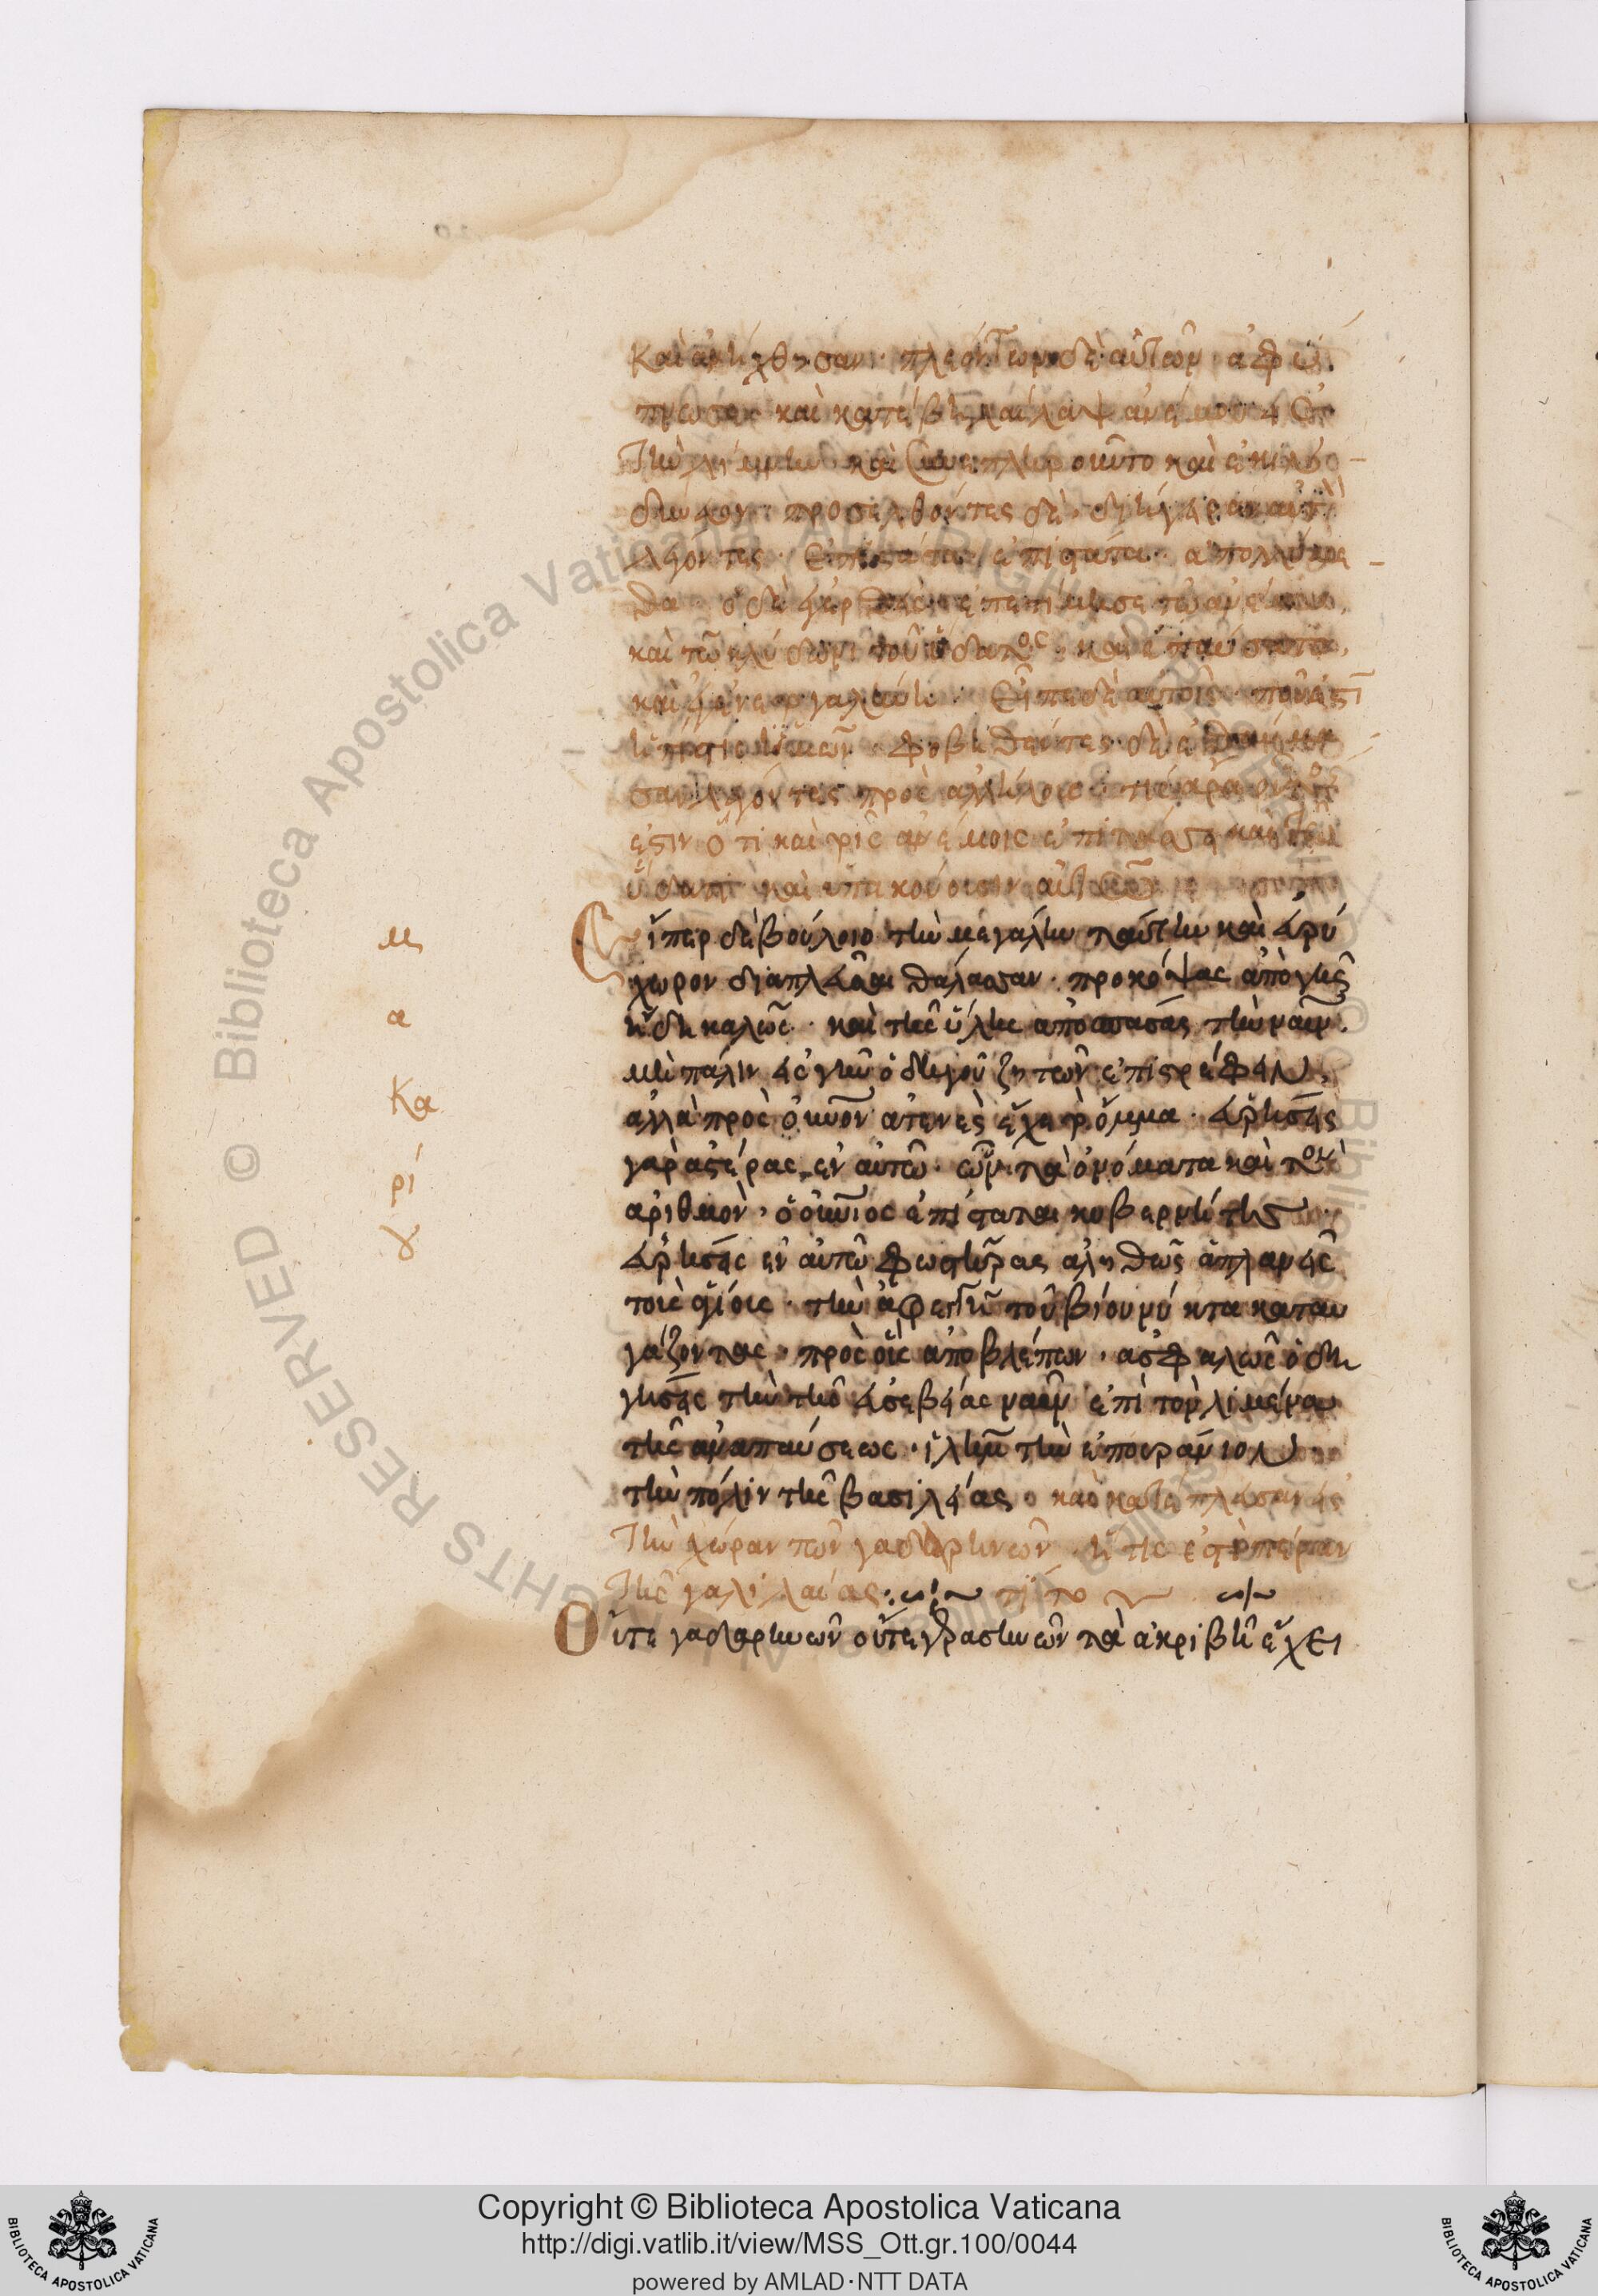 καὶ ἀνήχθησαν· πλεόντων δὲ αὐτῶν ἀφύ
πνωσε· καὶ κατέβη λαίλαψ ἀνέμου εἰς
τὴν λίμνην καὶ συνεπληροῦντο καὶ ἐκινδύ
νευον· προσελθόντες δὲ διήγειραν αὐτὸν
λέγοντες· ἐπιστάτα ἐπιστάτα· ἀπολλύμε
θα· ὁ δὲ ἐγερθεὶς ἐπετίμησε τῷ ἀνέμῳ,
καὶ τῷ κλύδωνι τοῦ ὕδατος· καὶ ἐπαύσατο,
καὶ ἐγένετο γαλήνη· Εἶπε δὲ αὐτοῖς· ποῦ ἐστὶ
ἡ πίστις ὑμῶν· φοβηθέντες δὲ ἐθαύμα
σαν λέγοντες πρὸς ἀλλήλους· τίς ἄρα οὗτός
ἐστιν ὅτι καὶ τοῖς ἀνέμοις ἐπιτάσσει καὶ τῷ
ὕδατι καὶ ὑπακούουσιν αὐτῷ
Εἴπερ δὲ βούλοιο τὴν μεγάλην ταύτην καὶ εὐρύ
χωρον διαπλεῦσαι θάλασσαν· προκόψας ἀπὸ γῆς
ἤδη καλῶς· καὶ τῆς ὕλης ἀποσπάσας τὴν ναῦν·
μὴ πάλιν εἰς γῆν ὁδηγοῦ ζητῶν ἐπιστρέφειν,
ἀλλὰ πρὸς οὐρανὸν ἀτενὲς ἔχε τὸ ὄμμα· εὑρήσεις
γὰρ ἀστέρας ἐν αὐτῷ· ὧν τὰ ὀνόματα καὶ τὸν
ἀριθμὸν· ὁ οὐράνιος ἐπίσταται κυβερνήτης·
εὑρήσεις ἐν αὐτῷ φωστῆρας ἀληθῶς ἀπλανεῖς
τοὺς ἁγίους· τὴν ἀφεγγῆ τοῦ βίου νύκτα καταυ
γάζοντας· πρὸς οὓς ἀποβλέπων· ἀσφαλῶς ὁδη
γήσεις τὴν τῆς εὐσεβείας ναῦν ἐπὶ τὸν λιμένα
τῆς ἀναπαύσεως· τὴν ἐπουράνιον·
τὴν πόλιν τῆς βασιλείας καὶ κατέπλευσαν εἰς
τὴν χώραν τῶν γαδαρηνῶν· ἥ τις ἐστὶ πέραν
τῆς γαλιλαίας:
Οὔτε γαδαρηνῶν οὔτε γεργεσηνῶν τὰ ἀκριβῆ ἔχει
μ
α
Κα
ρί
ȣ
Copyright © Biblioteca Apostolica Vaticana
http://digi.vatlib.it/view/MSS_Ott.gr.100/0044
powered by AMLAD·NTT DATA
BIBLIOTECA APOSTOLICA VATICANA
BIBLIOTECA APOSTOLICA VATICANA